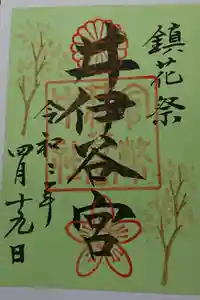 鎮花祭
井伊谷宮
令和三年
四月十九日